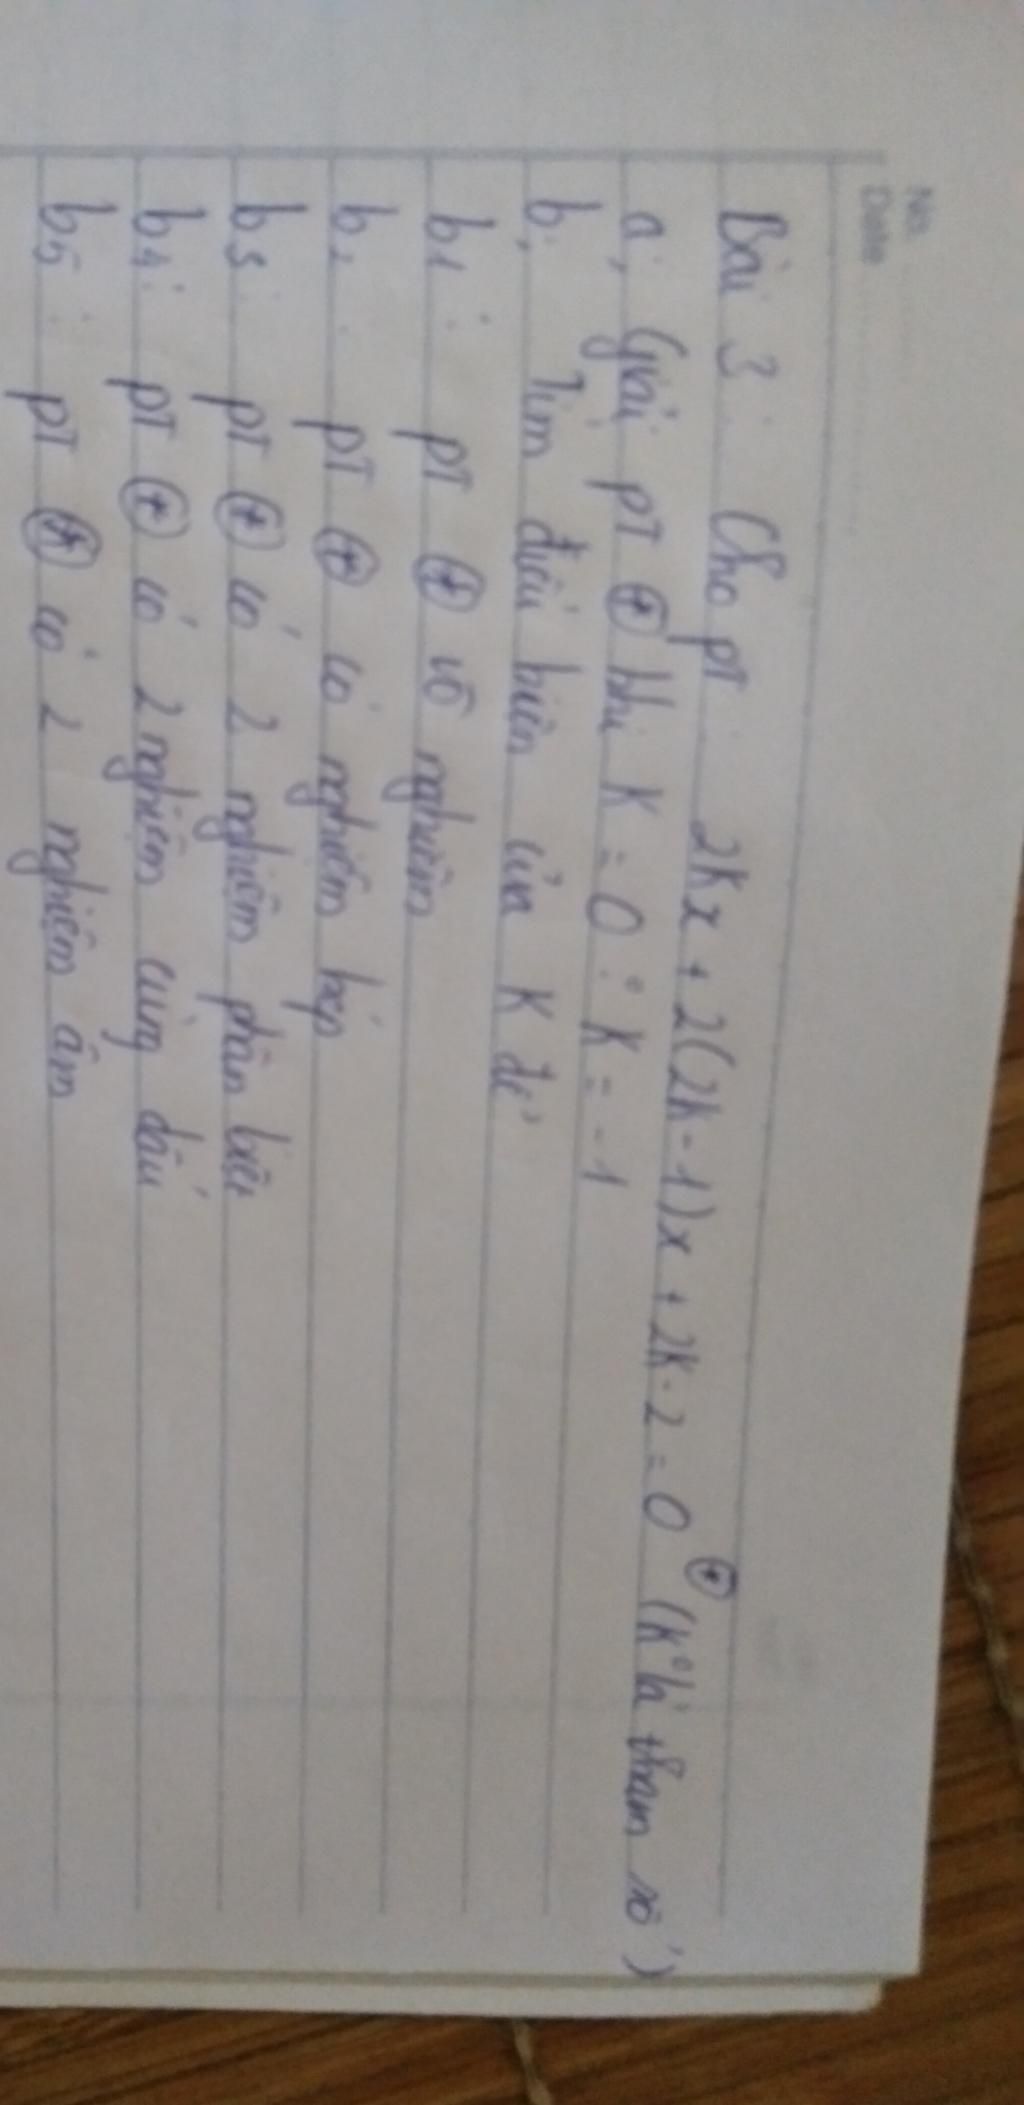 No.
Date
Bài 3 : Cho pT : 2Kx + 2(2K-1)x + 2K-2 = 0 (*) (K là tham số)
a, Giải pT (*) khi K = 0 ; K = -1
b, Tìm điều kiện của K để
b1 : pT (*) vô nghiệm
b2 : pT (*) có nghiệm kép
b3 : pT (*) có 2 nghiệm phân biệt
b4 : pT (*) có 2 nghiệm cùng dấu
b5 : pT (*) có 2 nghiệm âm